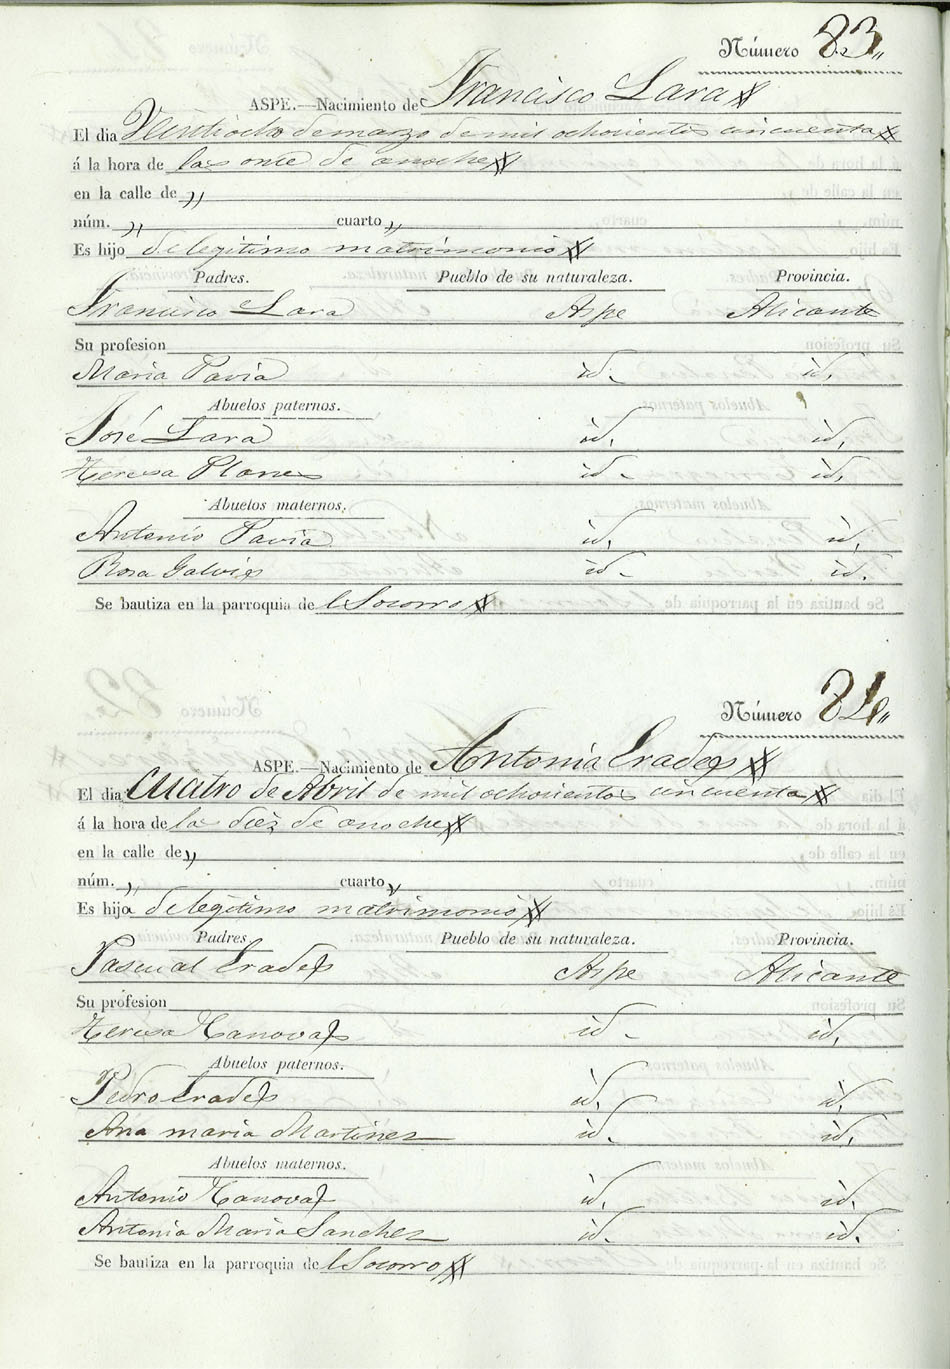 Número 83,,
ASPE.—Nacimiento de Francisco Lara
El dia Veintiocho de marzo de mil ochocientos cincuenta
á la hora de las once de anoche
en la calle de ,,
núm. ,, cuarto ,,
Es hijo de legitimo matrimonio
Padres. Pueblo de su naturaleza. Provincia.
Francisco Lara Aspe Alicante
Su profesion
Maria Pavia id. id.
Abuelos paternos.
José Lara id. id.
Teresa Planes id. id.
Abuelos maternos.
Antonio Pavia id. id.
Rosa Galvis id. id.
Se bautiza en la parroquia del Socorro
Número 84,,
ASPE.—Nacimiento de Antonia Erades
El dia Cuatro de Abril de mil ochocientos cincuenta
á la hora de la diez de anoche
en la calle de ,,
núm. ,, cuarto ,,
Es hija de legitimo matrimonio
Padres. Pueblo de su naturaleza. Provincia.
Pascual Erades Aspe Alicante
Su profesion
Teresa Canovas id. id.
Abuelos paternos.
Pedro Erades id. id.
Ana maria Martinez id. id.
Abuelos maternos.
Antonio Canovas id. id.
Antonia Maria Sanchez id. id.
Se bautiza en la parroquia del Socorro